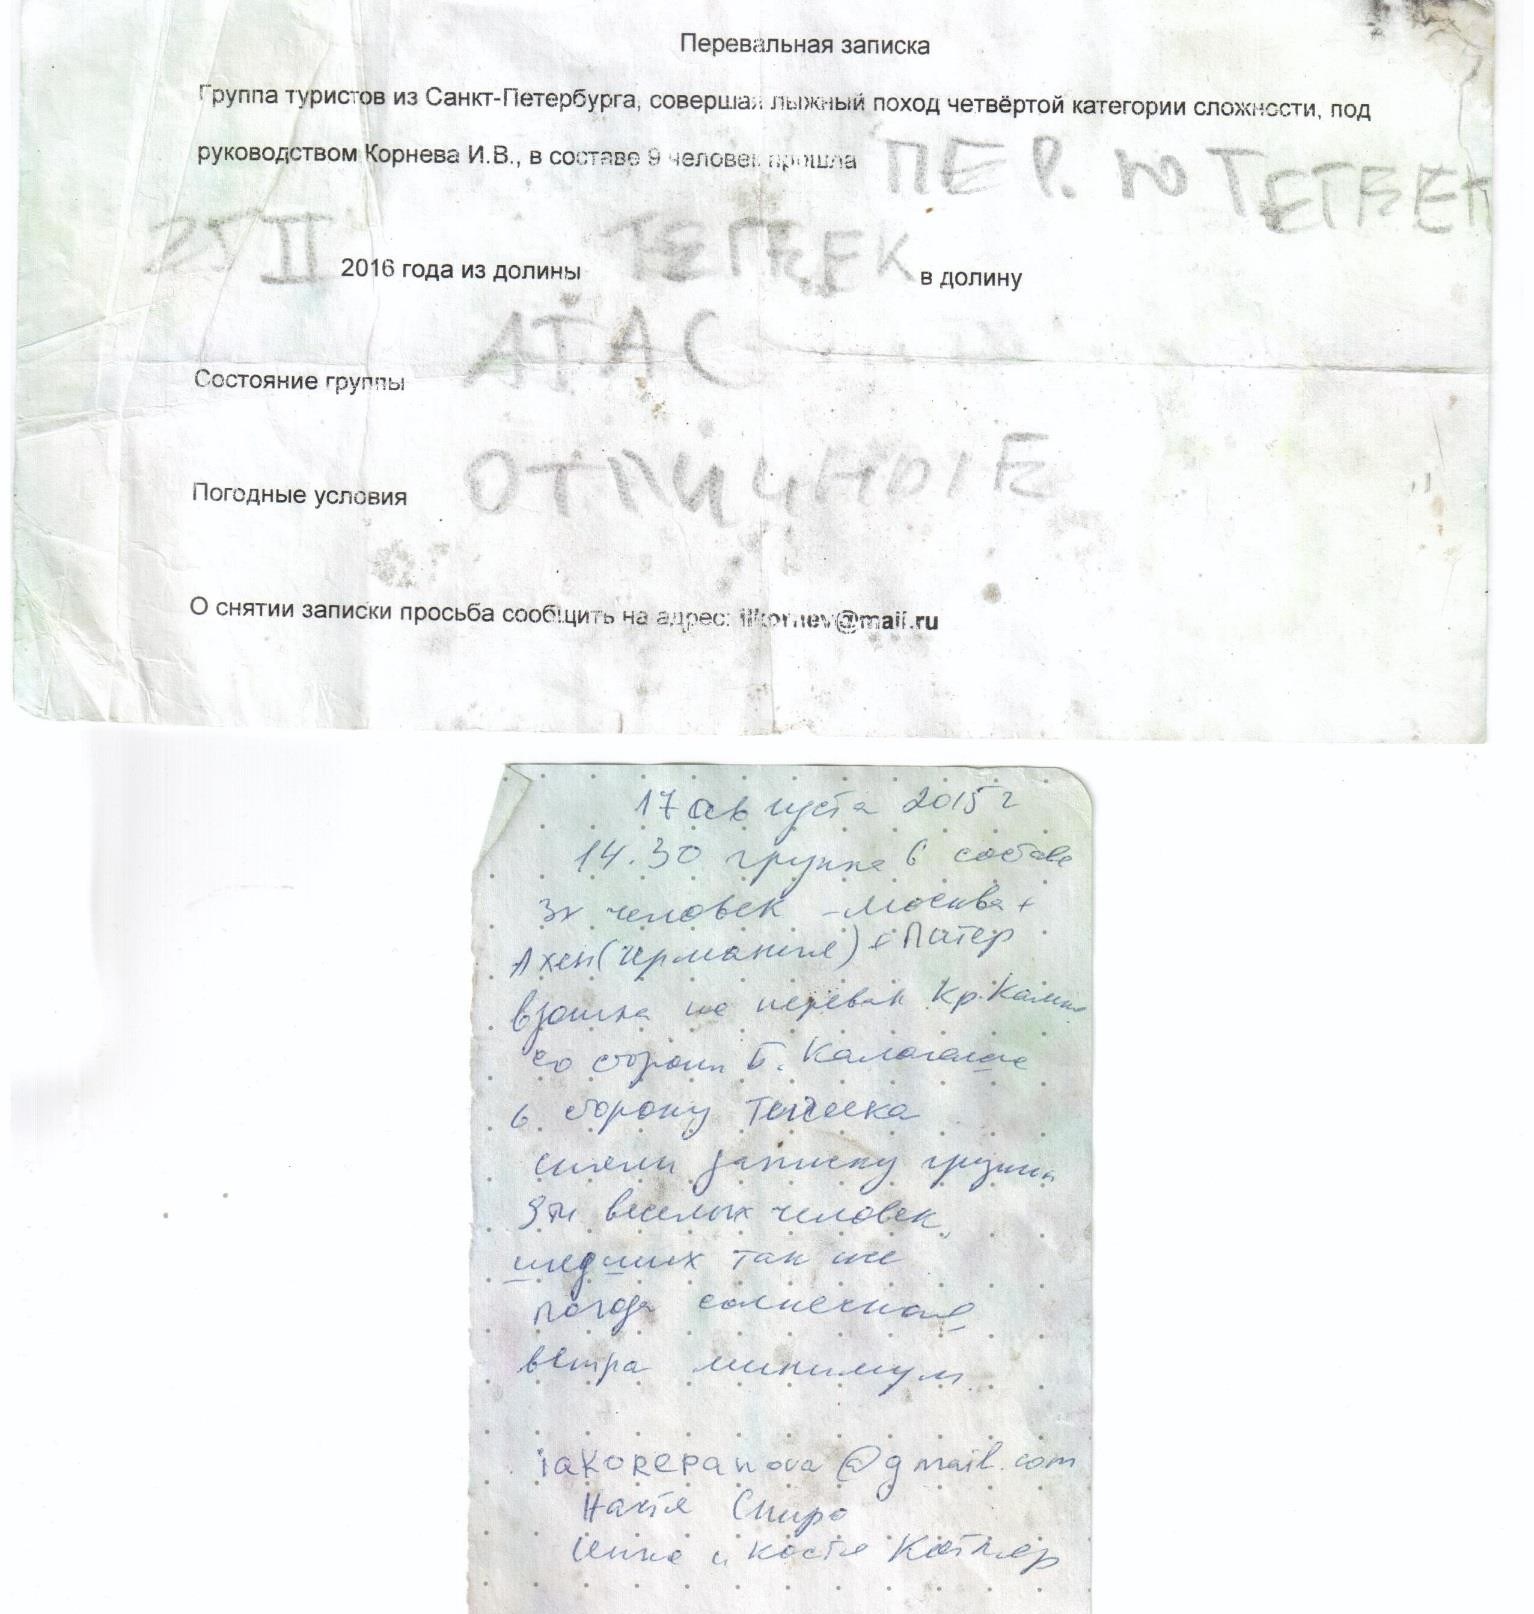 Перевальная записка
Группа туристов из Санкт-Петербурга, совершая лыжный поход четвёртой категории сложности, под
руководством Корнева И.В., в составе 9 человек прошла ПЕР. Ю ТЕГЕЕК
25 II 2016 года из долины ТЕГЕЕК в долину
АТАС
Состояние группы
Погодные условия ОТЛИЧНЫЕ
О снятии записки просьба сообщить на адрес: ilkornev@mail.ru
17 августа 2015 г
14.30 группа в составе
3х человек – Москва +
Ахен (Германия) + Питер
взошла на перевал Кр. Камни
со стороны Б. Калагаше
в сторону Тегеека
сняли записку группы
3ти веселых человек,
шедших так же
погода солнечная
ветра минимум.
iakorepanova@gmail.com
Настя Спиро
и Костя Котляр